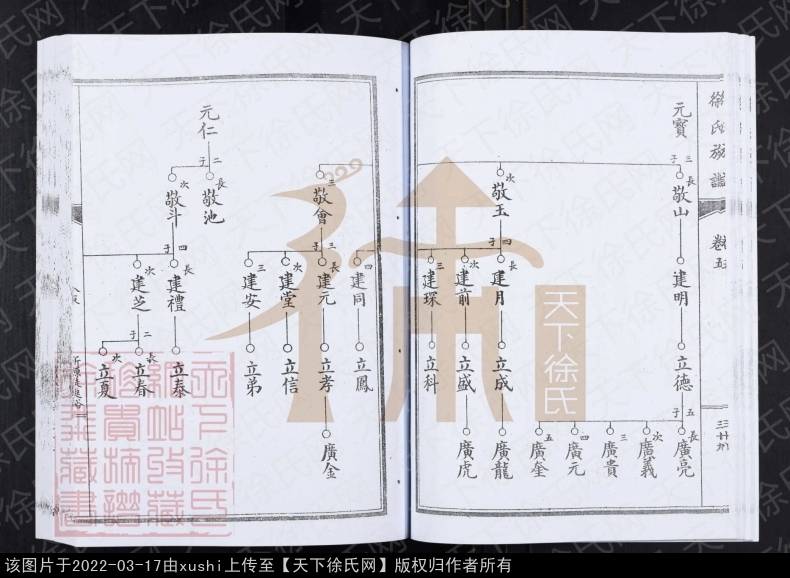 徐氏族譜
卷五
元寶
三子
長 敬山
建明
立德
五子
長 廣亮
次 廣義
三 廣貴
四 廣元
五 廣奎
次 敬玉
四子
長 建月
立成
廣龍
次 建前
立盛
廣虎
三 建琛
立科
四 建同
立鳳
三 敬會
三子
長 建元
立孝
廣金
次 建堂
立信
三 建安
立弟
元仁
二子
長 敬池
次 敬斗
四子
長 建禮
立泰
次 建芝
二子
長 立春
次 立夏
天下徐氏
天下徐氏网
该图片于2022-03-17由xushi上传至【天下徐氏网】版权归作者所有